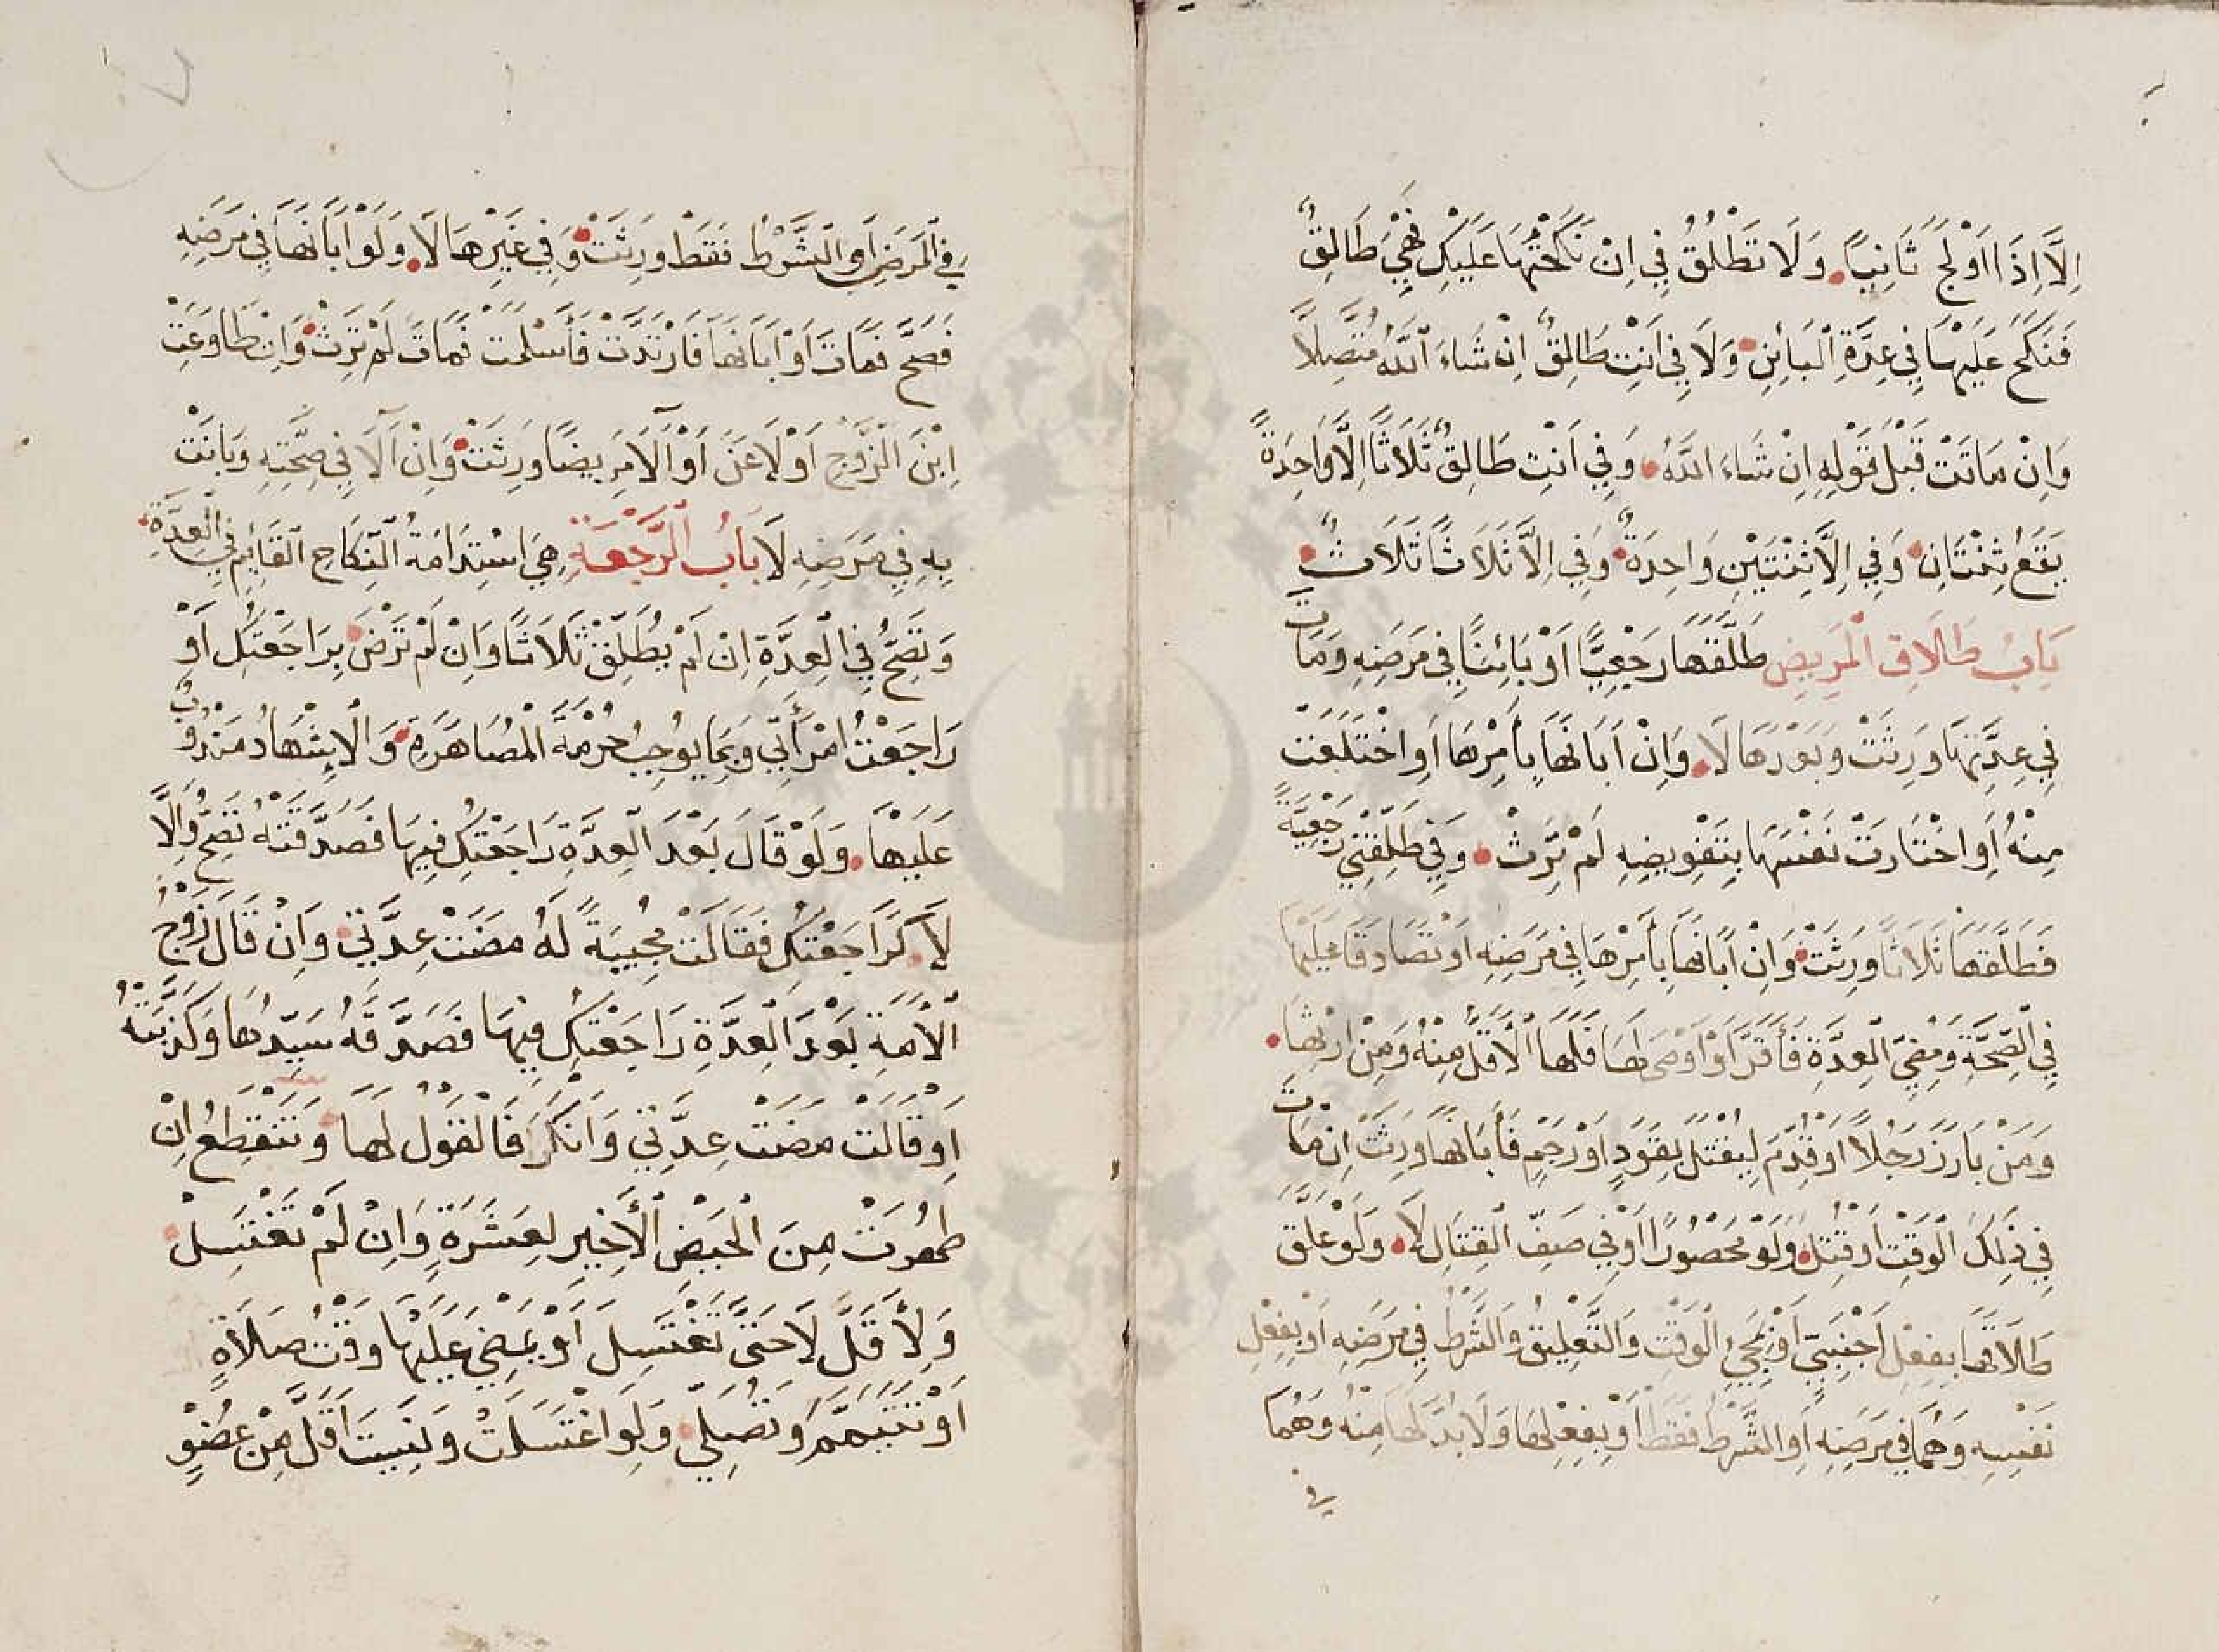 اِلَّا اِذَا اَوْلَجَ ثَانِيًا وَلَا تَطْلُقُ فِي اِنْ نَكَحْتُهَا عَلَيْكِ فَهِيَ طَالِقٌ
فَنَكَحَ عَلَيْهَا فِي عِدَّةِ الْبَائِنِ وَلَا فِي اَنْتِ طَالِقٌ اِنْ شَاءَ اللّٰهُ مُتَّصِلًا
وَاِنْ مَاتَتْ قَبْلَ قَوْلِهِ اِنْ شَاءَ اللّٰهُ وَفِي اَنْتِ طَالِقٌ ثَلَاثًا اِلَّا وَاحِدَةً
يَقَعُ ثِنْتَانِ وَفِي اِلَّا ثِنْتَيْنِ وَاحِدَةٌ وَفِي اِلَّا ثَلَاثًا ثَلَاثٌ
بَابُ طَلَاقِ الْمَرِيضِ طَلَّقَهَا رَجْعِيًّا اَوْ بَائِنًا فِي مَرَضِهِ وَمَاتَ
فِي عِدَّتِهَا وَرِثَتْ وَبَعْدَهَا لَا وَاِنْ اَبَانَهَا بِأَمْرِهَا اَوِ اخْتَلَعَتْ
مِنْهُ اَوِ اخْتَارَتْ نَفْسَهَا بِتَفْوِيضِهِ لَمْ تَرِثْ وَفِي طَلِّقْنِي رَجْعِيَّةً
فَطَلَّقَهَا ثَلَاثًا وَرِثَتْ وَاِنْ اَبَانَهَا بِأَمْرِهَا فِي مَرَضِهِ اَوْ تَصَادَقَا عَلَيْهَا
فِي الصِّحَّةِ وَمُضِيِّ الْعِدَّةِ فَأَقَرَّ اَوْ اَوْصَى لَهَا فَلَهَا الْاَقَلُّ مِنْهُ وَمِنْ اِرْثِهَا
وَمَنْ بَارَزَ رَجُلًا اَوْ قُدِّمَ لِيُقْتَلَ بِقَوَدٍ اَوْ رَجْمٍ فَأَبَانَهَا وَرِثَتْ اِنْ مَاتَ
فِي ذٰلِكَ الْوَقْتِ اَوْ قُتِلَ وَلَوْ مَحْصُورًا اَوْ فِي صَفِّ الْقِتَالِ لَا وَلَوْ عَلَّقَ
طَلَاقَهَا بِفِعْلِ اَجْنَبِيٍّ اَوْ بِمَجِيْءِ الْوَقْتِ وَالتَّعْلِيقُ وَالشَّرْطُ فِي مَرَضِهِ اَوْ بِفِعْلِ
نَفْسِهِ وَهُمَا فِي مَرَضِهِ اَوِ الشَّرْطُ فَقَطْ اَوْ بِفِعْلِهَا وَلَا بُدَّ لَهَا مِنْهُ وَهُمَا
في
فِي الْمَرَضِ اَوِ الشَّرْطُ فَقَطْ وَرِثَتْ وَفِي غَيْرِهَا لَا وَلَوْ اَبَانَهَا فِي مَرَضِهِ
فَصَحَّ فَمَاتَ اَوْ اَبَانَهَا فَارْتَدَّتْ فَأَسْلَمَتْ فَمَاتَ لَمْ تَرِثْ وَاِنْ طَاوَعَتْ
اِبْنَ الزَّوْجِ اَوْ لَاعَنَ اَوْ اٰلَا مَرِيضًا وَرِثَتْ وَاِنْ اٰلَا فِي صِحَّتِهِ وَبَانَتْ
بِهِ فِي مَرَضِهِ لَا بَابُ الرَّجْعَةِ هِيَ اسْتِدَامَةُ النِّكَاحِ الْقَائِمِ فِي الْعِدَّةِ
وَتَصِحُّ فِي الْعِدَّةِ اِنْ لَمْ يُطَلِّقْ ثَلَاثًا وَاِنْ لَمْ تَرْضَ بِرَاجَعْتُكِ اَوْ
رَاجَعْتُ امْرَأَتِي وَبِمَا يُوجِبُ حُرْمَةَ الْمُصَاهَرَةِ وَالْاِشْهَادُ مَنْدُوبٌ
عَلَيْهَا وَلَوْ قَالَ بَعْدَ الْعِدَّةِ رَاجَعْتُكِ فِيهَا فَصَدَّقَتْهُ تَصِحُّ وَاِلَّا
لَا كَرَاجَعْتُكِ فَقَالَتْ مُجِيبَةً لَهُ مَضَتْ عِدَّتِي وَاِنْ قَالَ زَوْجُ
الْاَمَةِ بَعْدَ الْعِدَّةِ رَاجَعْتُكِ فِيهَا فَصَدَّقَهُ سَيِّدُهَا وَكَذَّبَتْهُ
اَوْ قَالَتْ مَضَتْ عِدَّتِي وَاَنْكَرَ فَالْقَوْلُ لَهَا وَتَنْقَطِعُ اِنْ
طَهُرَتْ مِنَ الْحَيْضِ الْأَخِيرِ لِعَشَرَةٍ وَاِنْ لَمْ تَغْتَسِلْ
وَلِأَقَلَّ لَا حَتَّى تَغْتَسِلَ اَوْ يَمْضِيَ عَلَيْهَا وَقْتُ صَلَاةٍ
اَوْ تَتَيَمَّمَ وَتُصَلِّي وَلَوِ اغْتَسَلَتْ وَنَسِيَتْ اَقَلَّ مِنْ عُضْوٍ